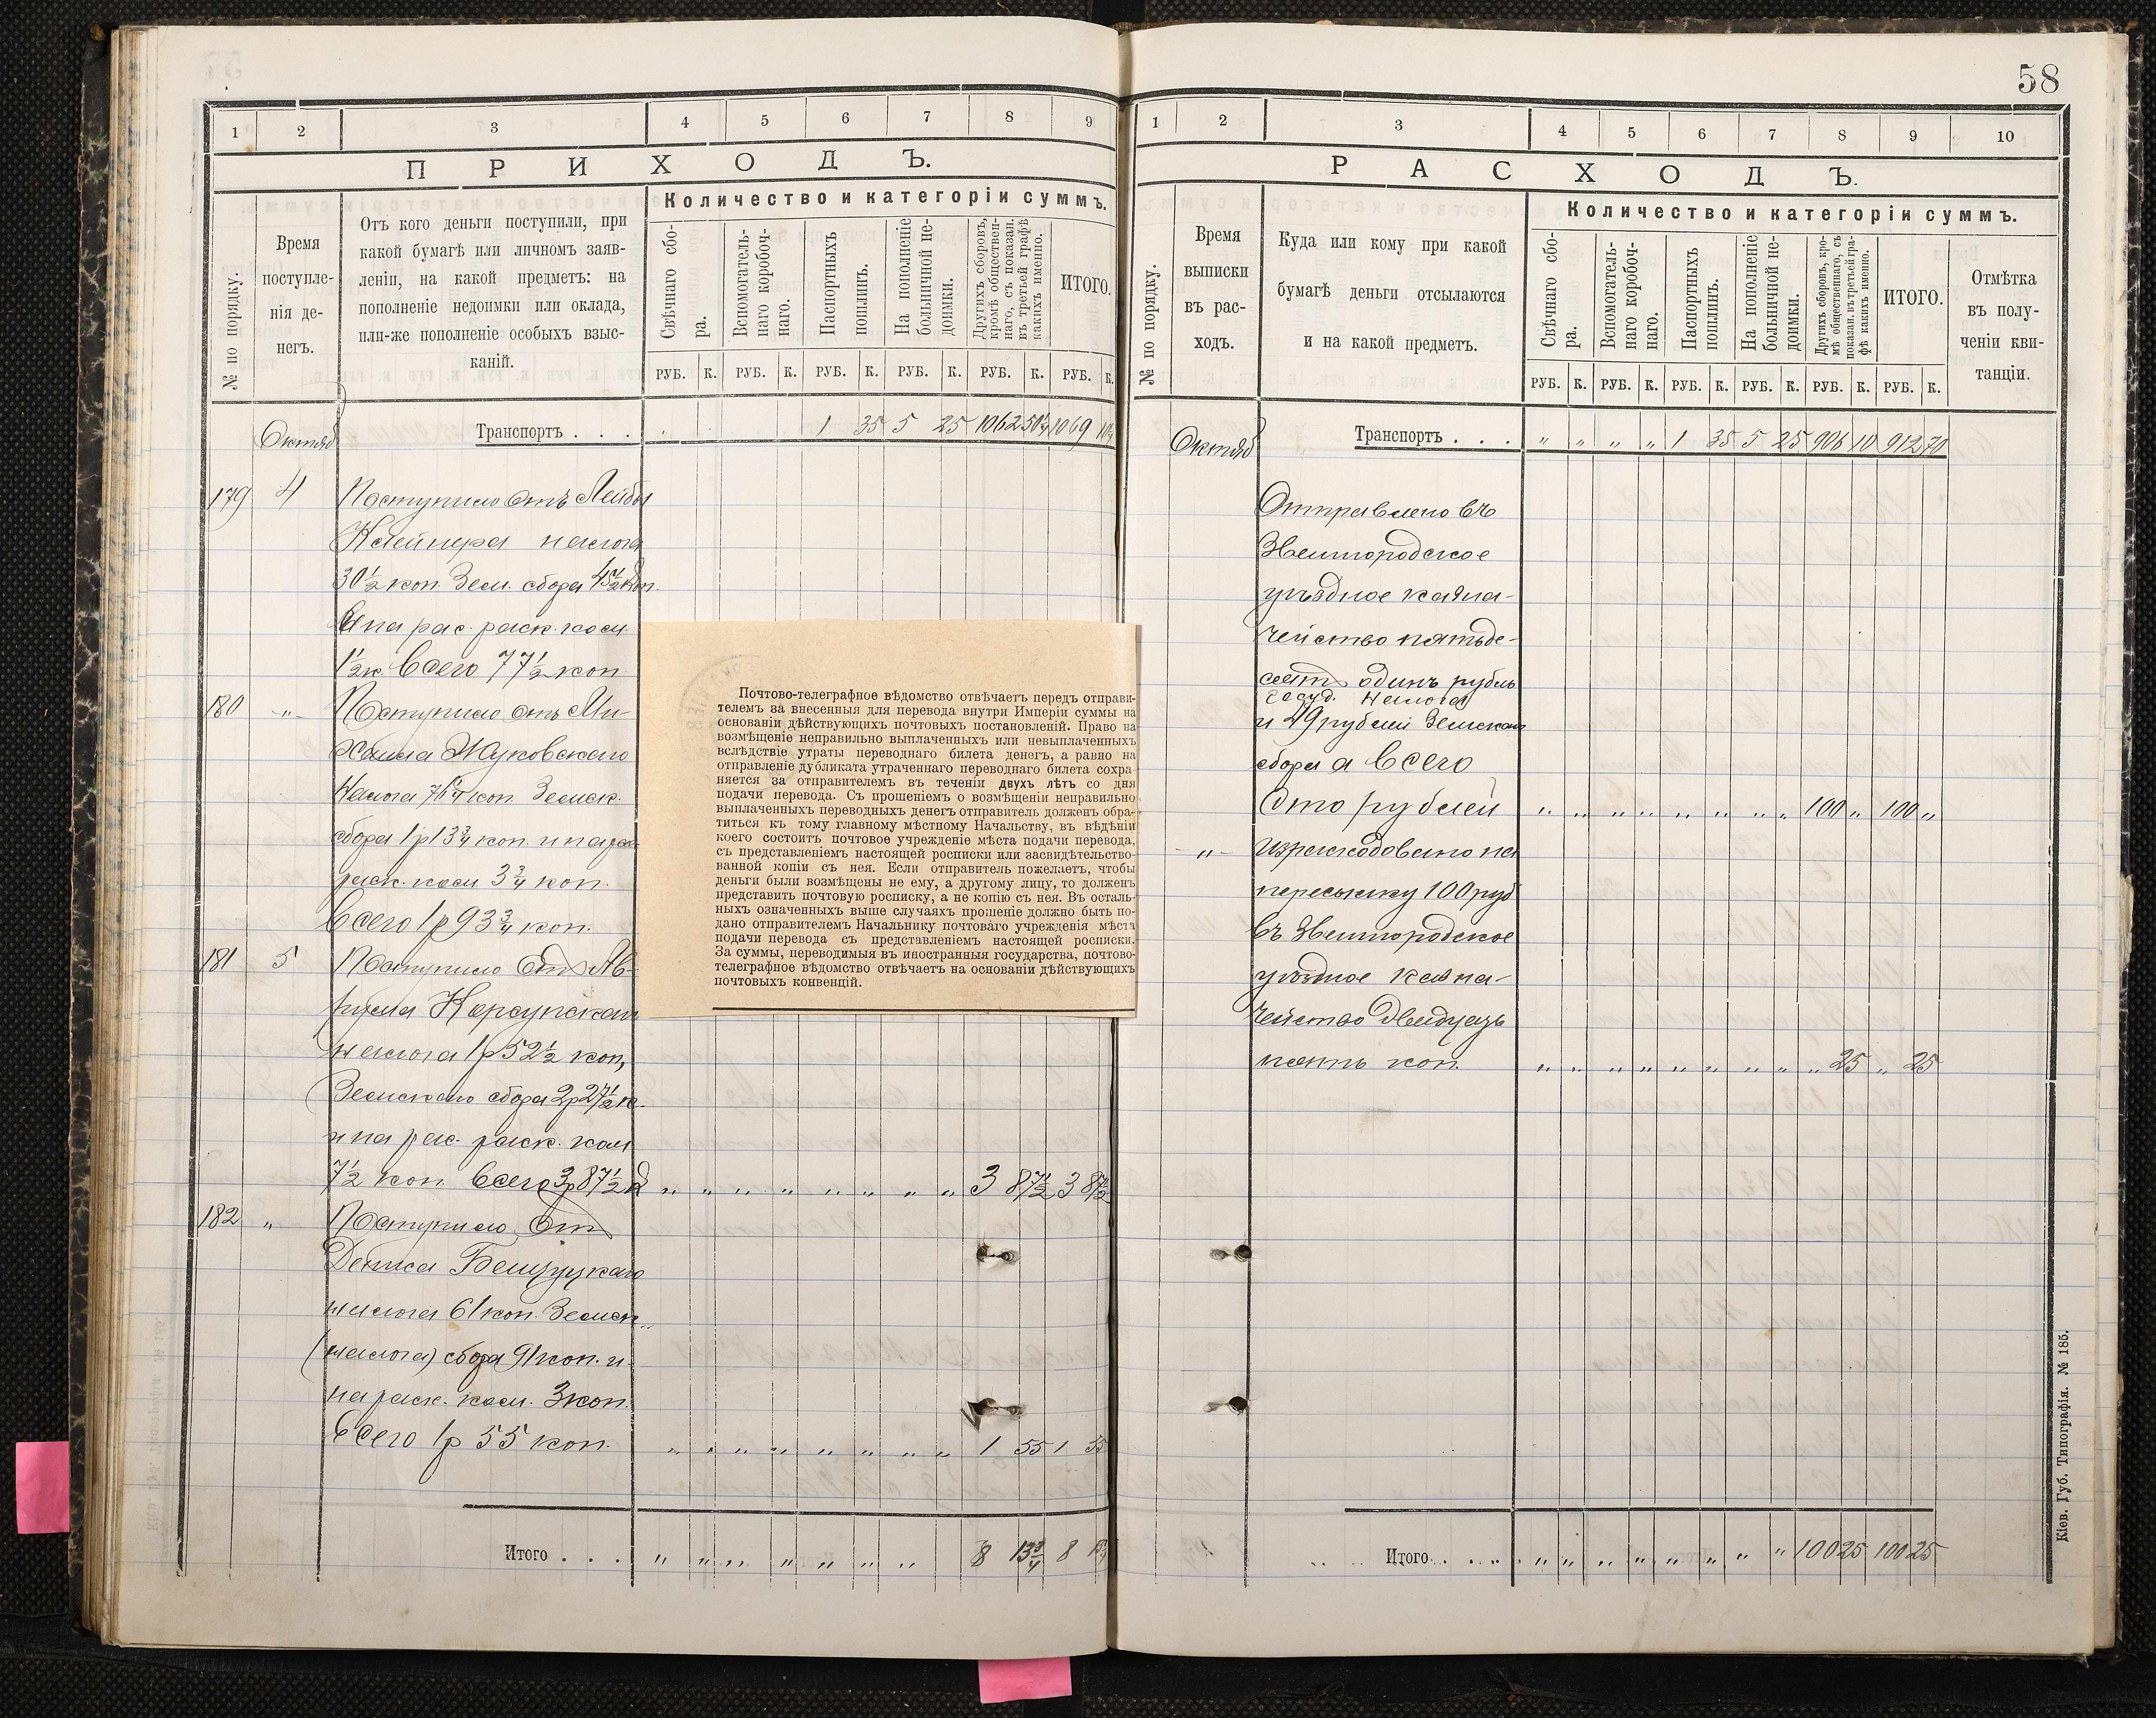 58
1 2 3 4 5 6 7 8 9
ПРИХОДЪ.
№ по порядку.
Время поступле-
нія де-
негъ.
Отъ кого деньги поступили, при
какой бумагѣ или личномъ заяв-
леніи, на какой предметъ: на
пополненіе недоимки или оклада,
или-же пополненіе особыхъ взыс-
каній.
Количество и категоріи суммъ.
Свѣчнаго сбо-
ра.
Вспомогатель-
наго коробоч-
наго.
Паспортныхъ
пошлинъ.
На пополненіе
больничной не-
доимки.
Другихъ сборовъ,
кромѣ обществен-
наго, съ показан.
въ третьей графѣ
какихъ именно.
ИТОГО.
РУБ. К. РУБ. К. РУБ. К. РУБ. К. РУБ. К. РУБ. К.
Октяб Транспортъ . . . 1 35 5 25 1062 50¼ 1069 10¼
179 4 Поступило отъ Лейбы
Клейнера налога
30½ коп. Зем. сбора 45½ коп.
и на рас. раск. ком.
1½к. всего 77½ коп
180 -„- Поступило отъ Ми-
хаила Жуковскаго
налога 76¼ коп. Земск.
сбора 1р13¾ коп. и на рас
раск. ком 3¾ коп.
Всего 1р93¾ коп.
181 5 Поступило отъ Ав-
рума Корсунскаго
налога 1р52½ коп,
Земскаго сбора 2р27½ к.
и на рас. раск. ком
7½ коп всего 3р87½ к „ „ „ „ „ „ „ „ 3 87½ 3 87½
182 „ Поступило от
налога 61 коп. Земск„
(налога) сбора 91 коп. и
на раск. ком. 3 коп.
всего 1р 55 коп. „ „ „ „ „ „ „ „ 1 55 1 55
Итого . . . „ „ „ „ „ „ „ 8 13¾ 8 13¾
Почтово-телеграфное вѣдомство отвѣчаетъ передъ отправи-
телемъ за внесенныя для перевода внутри Имперіи суммы на
основаніи дѣйствующихъ почтовыхъ постановленій. Право на
возмѣщеніе неправильно выплаченныхъ или невыплаченныхъ
вслѣдствіе утраты переводнаго билета денегъ, а равно на
отправленіе дубликата утраченнаго переводнаго билета сохра-
няется за отправителемъ въ теченіи двухъ лѣтъ со дня
подачи перевода. Съ прошеніемъ о возмѣщеніи неправильно
выплаченныхъ переводныхъ денегъ отправитель долженъ обра-
титься къ тому главному мѣстному Начальству, въ вѣдѣніи
коего состоитъ почтовое учрежденіе мѣста подачи перевода,
съ представленіемъ настоящей росписки или засвидѣтельство-
ванной копіи съ нея. Если отправитель пожелаетъ, чтобы
деньги были возмѣщены не ему, а другому лицу, то долженъ
представить почтовую росписку, а не копію съ нея. Въ осталь-
ныхъ означенныхъ выше случаяхъ прошеніе должно быть по-
дано отправителемъ Начальнику почтоваго учрежденія мѣста
подачи перевода съ представленіемъ настоящей росписки.
За суммы, переводимыя въ иностранныя государства, почтово-
телеграфное вѣдомство отвѣчаетъ на основаніи дѣйствующихъ
почтовыхъ конвенцій.
1 2 3 4 5 6 7 8 9 10
РАСХОДЪ.
№ по порядку.
Время
выписки
въ рас-
ходъ.
Куда или кому при какой
бумагѣ деньги отсылаются
и на какой предметъ.
Количество и категоріи суммъ.
Свѣчнаго сбо-
ра.
Вспомогатель-
наго коробоч-
наго.
Паспортныхъ
пошлинъ.
На пополненіе
больничной не-
доимки.
Другихъ сборовъ, кро-
мѣ общественнаго, съ
показан. въ третьей гра-
фѣ какихъ именно.
ИТОГО.
Отмѣтка
въ полу-
ченіи кви-
танціи.
РУБ. К. РУБ. К. РУБ. К. РУБ. К. РУБ. К. РУБ. К.
Октяб Транспортъ . . . „ „ „ „ 1 35 5 25 906 10 912 70
Отправлено въ
Звенигородское
уѣздное казна-
чейство пятьде-
сятъ одинъ рубль
госуд. налога
и 49 рублей Земскаго
сбора а всего
Сто рублей „ „ „ „ „ „ „ „ 100 „ 100 „
-„- Израсходовано на
пересылку 100 руб
въ Звенигородское
уѣздное казна-
чейство двадцать
пять коп. „ „ „ „ „ „ „ „ „ 25 „ 25
Итого . . . „ „ „ „ „ „ „ „ 100 25 100 25
Кіев. Губ. Типографія. № 185.